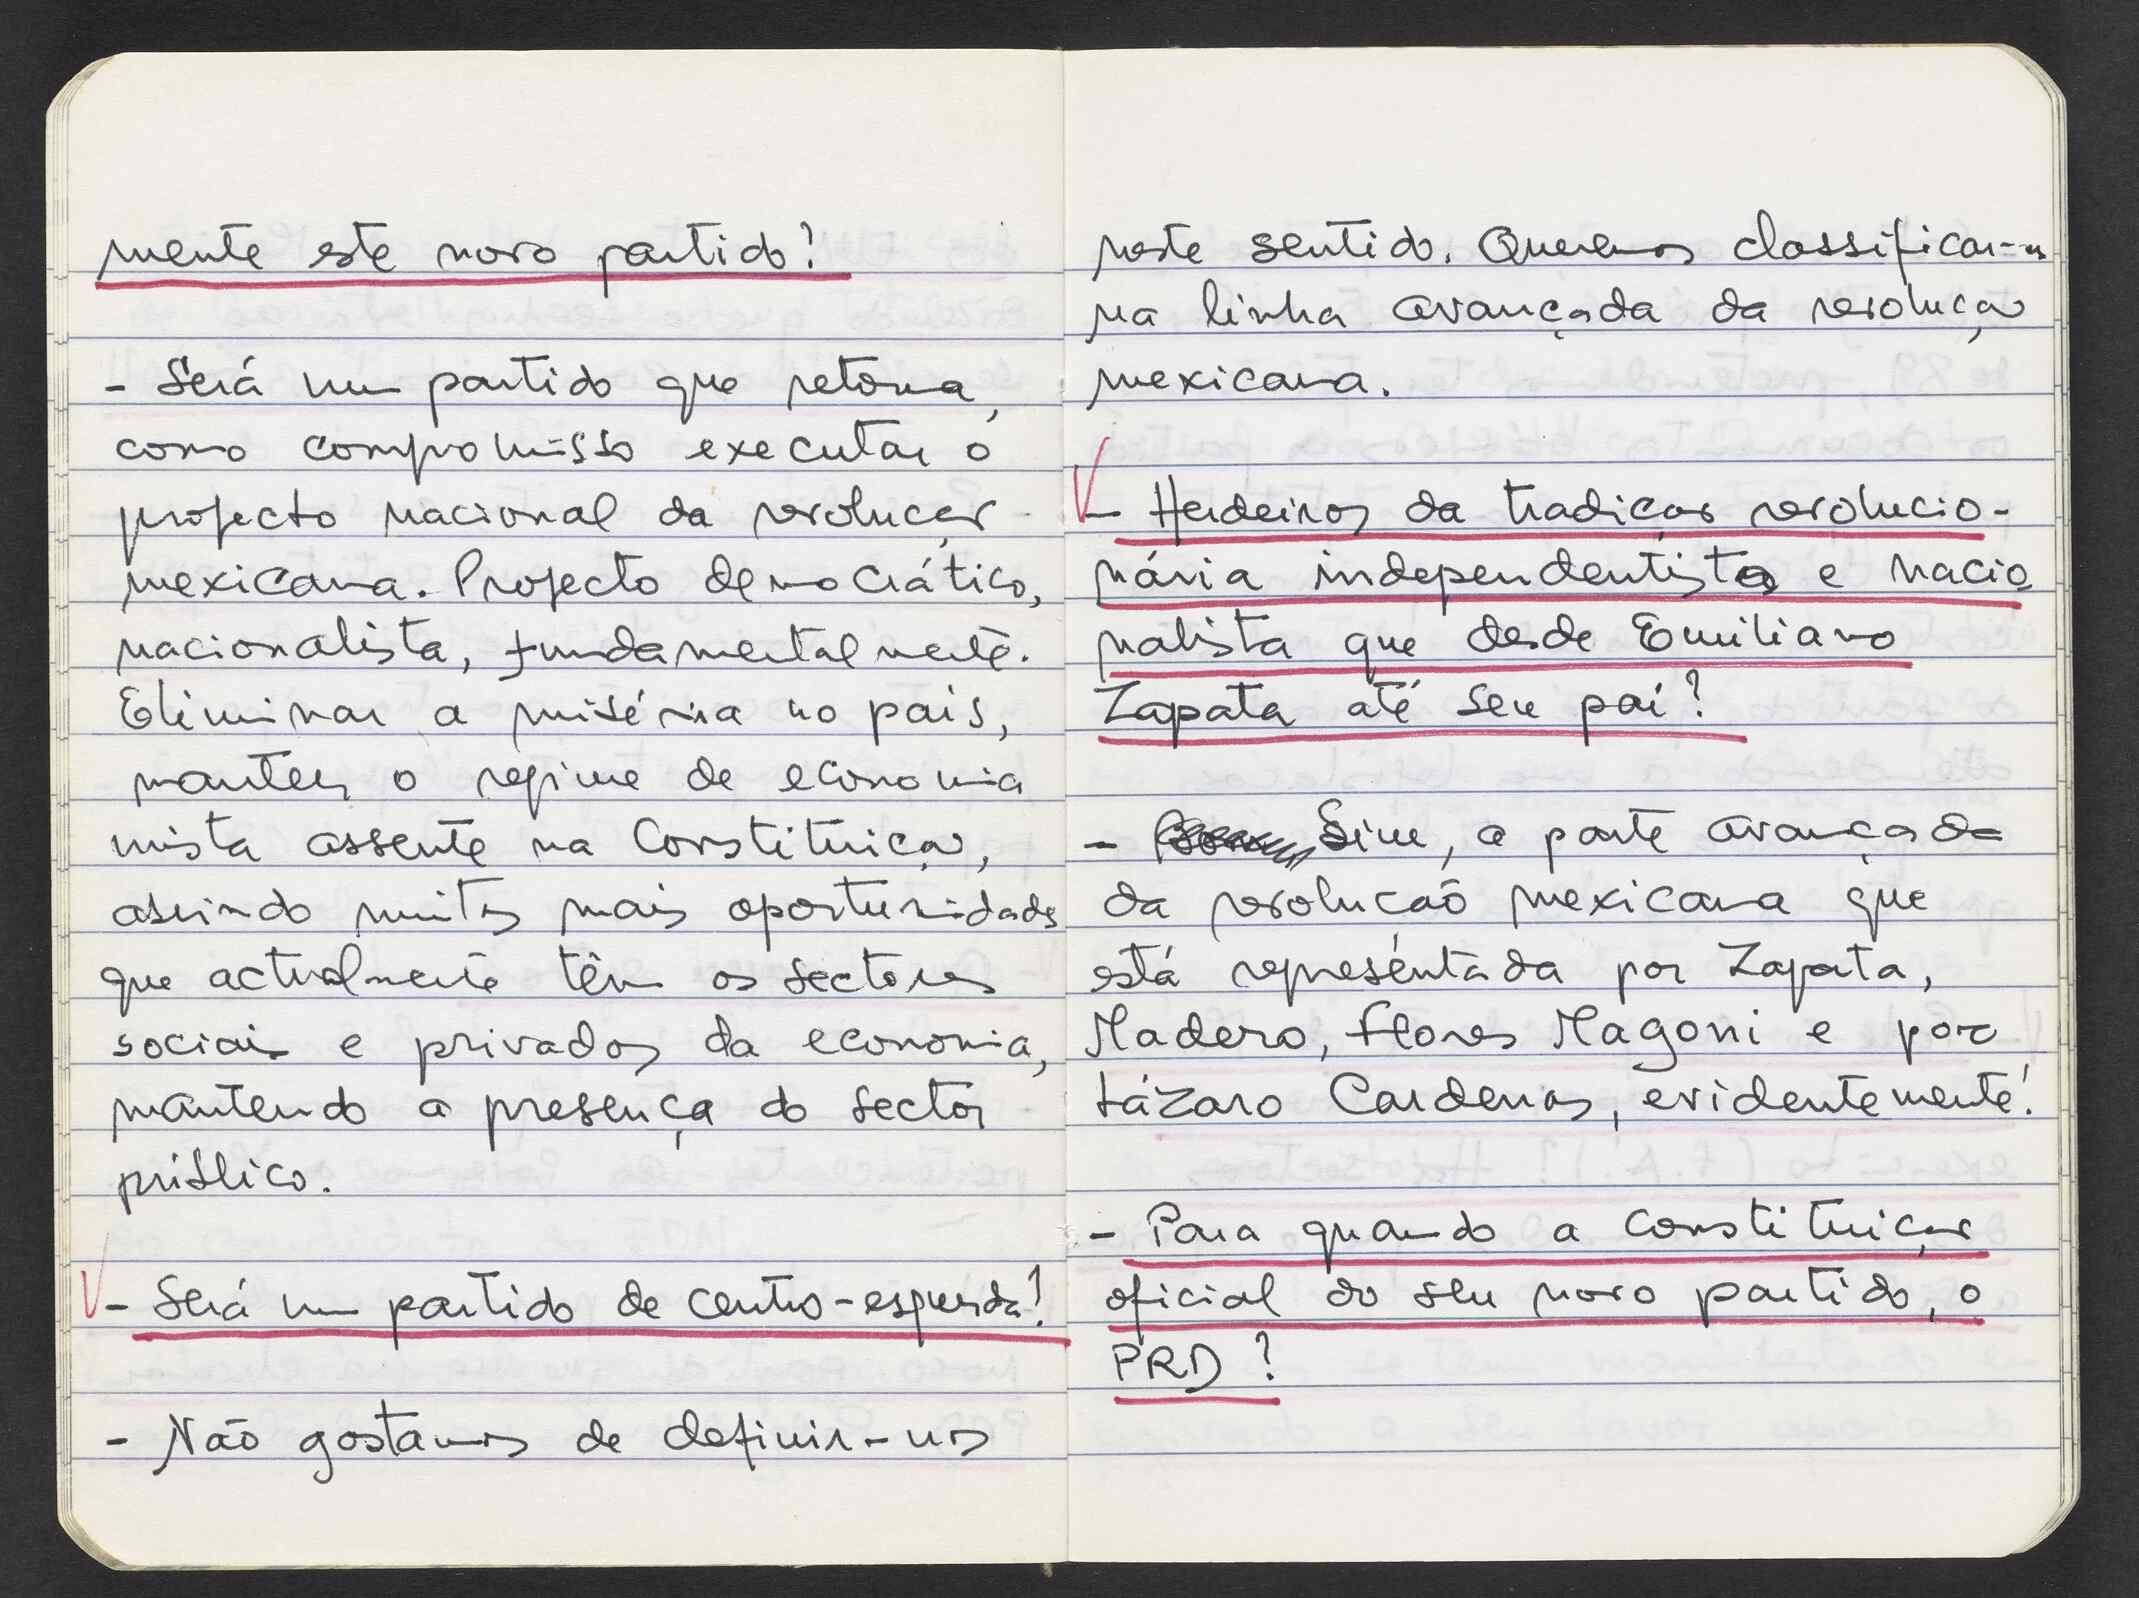 mente este novo partido?
- Será um partido que retoma,
como compromisso executar o
projecto nacional da revolução
mexicana. Projecto democrático,
nacionalista, fundamentalmente.
Eliminar a miséria no país,
manter o regime de economia
mista assente na Constituição,
abrindo muitas mais oportunidades
que actualmente têm os sectores
sociais e privados da economia,
mantendo a presença do sector
público.
- Será um partido de centro-esquerda?
- Não gostamos de definir-nos
neste sentido. Queremos classificar-nos
na linha avançada da revolução
mexicana.
- Herdeiros da tradição revolucio-
nária independentista e nacio
nalista que desde Emiliano
Zapata até seu pai?
- Sim, a parte avançada
da revolução mexicana que
está representada por Zapata,
Madero, Flores Magoni e por
Lázaro Cardenas, evidentemente!
- Para quando a constituição
oficial do seu novo partido, o
PRD?